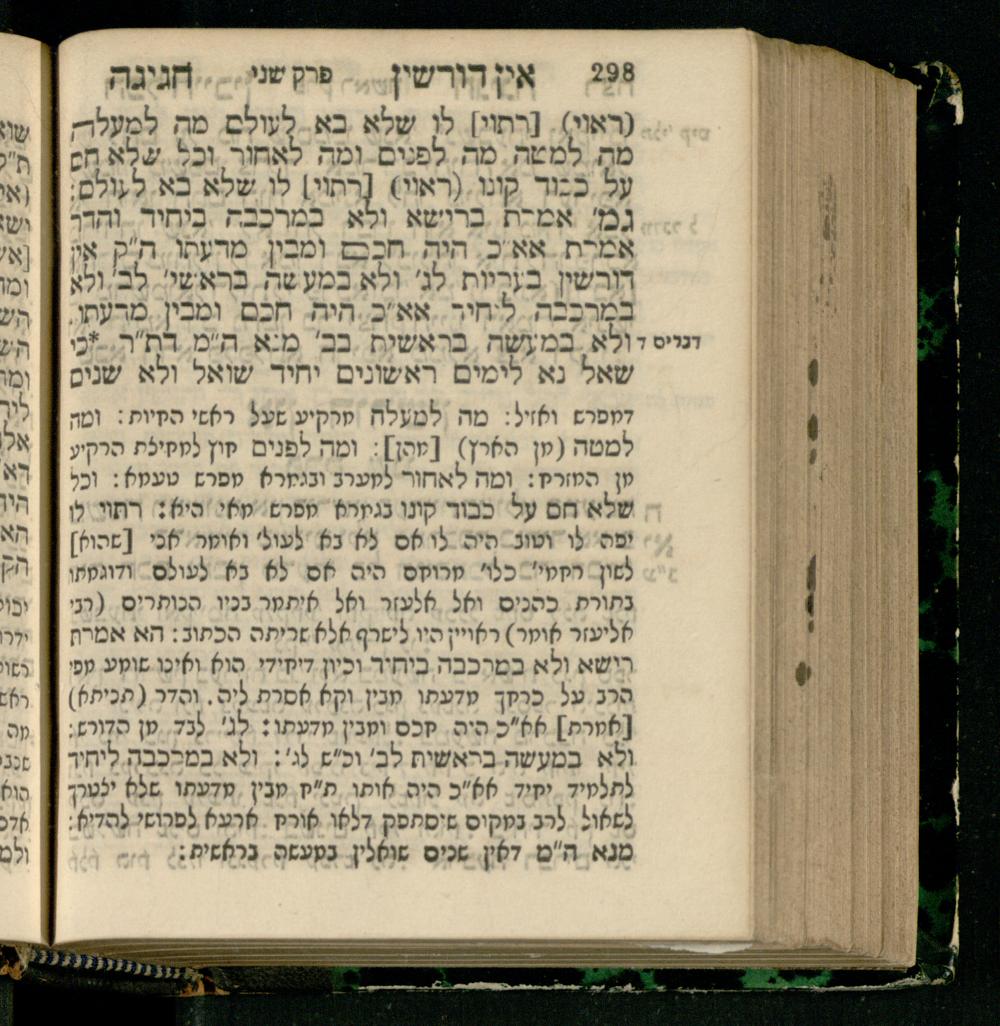 298 אין דורשין פרק שני חגיגה
(ראוי) [רתוי] לו שלא בא לעולם מה למעלה
מה למטה מה לפנים ומה לאחור וכל שלא חס
על כבוד קונו (ראוי) [רתוי] לו שלא בא לעולם:
גמ' אמרת ברישא ולא במרכבה ביחיד והדר
אמרת אא"כ היה חכם ומבין מדעתו ה"ק אין
דורשין בעריות לג' ולא במעשה בראשי' לב' ולא
במרכבה ליחיד אא"כ היה חכם ומבין מדעתו.
דברים ד ולא במעשה בראשית בב' מנא ה"מ דת"ר *כי
שאל נא לימים ראשונים יחיד שואל ולא שנים
דמפרש ואזיל: מה למעלה מרקיע שעל ראשי החיות: ומה
למטה (מן הארץ) [מהן]: ומה לפנים חוץ למחילת הרקיע
מן המזרח: ומה לאחור למערב ובגמרא מפרש טעמא: וכל
שלא חס על כבוד קונו בגמרא מפרש מאי היא: רתוי לו
יפה לו וטוב היה לו אם לא בא לעול' ואומר אני [שהוא]
לשון רחמי' כלו' מרוחם היה אם לא בא לעולם ודוגמתו
בתורת כהנים ואל אלעזר ואל איתמר בניו הנותרים (רבי
אליעזר אומר) ראויין היו לישרף אלא שריתה הכתוב: הא אמרת
רישא ולא במרכבה ביחיד וכיון דיחידי הוא ואינו שומע מפי
הרב על כרחך מדעתו מבין וקא אסרת ליה. והדר (תכיתא)
[אמרת] אא"כ היה חכם ומבין מדעתו: לג' לבד מן הדורש:
ולא במעשה בראשית לב' וכ"ש לג': ולא במרכבה ליחיד
לתלמיד יחיד אא"כ היה אותו ת"ח מבין מדעתו שלא יצטרך
לשאול לרב במקום שיסתפק דלאו אורח ארעא לפרושי להדיא:
מנא ה"מ דאין שנים שואלין במעשה בראשית: